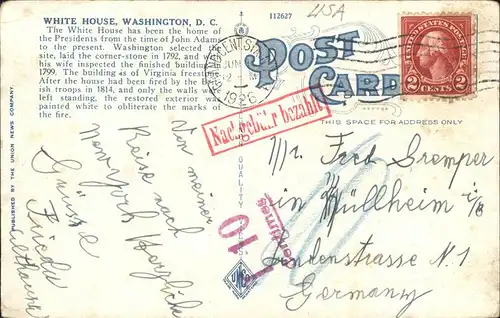 WHITE HOUSE, WASHINGTON, D. C.
The White House has been the home of
the Presidents from the time of John Adams
to the present. Washington selected the
site, laid the corner-stone in 1792, and
his wife inspected the finished building
1799. The building as of Virginia freestone.
After the house had been fired by the Brit-
ish troops in 1814, and only the walls were
left standing, the restored exterior was
painted white to obliterate the marks of
the fire.
PUBLISHED BY THE UNION NEWS COMPANY.
112627
USA
JUN
1926
POST
CARD
UNITED STATES POSTAGE
2 CENTS 2
THIS SPACE FOR ADDRESS ONLY
Nachgebühr bezahlt
QUALITY
10
centimes
Von meiner
Reise nach
New York Herzliche
Grüsse
Mr. Fred Gremper
in Müllheim i/B
Lindenstrasse N. 1
Germany